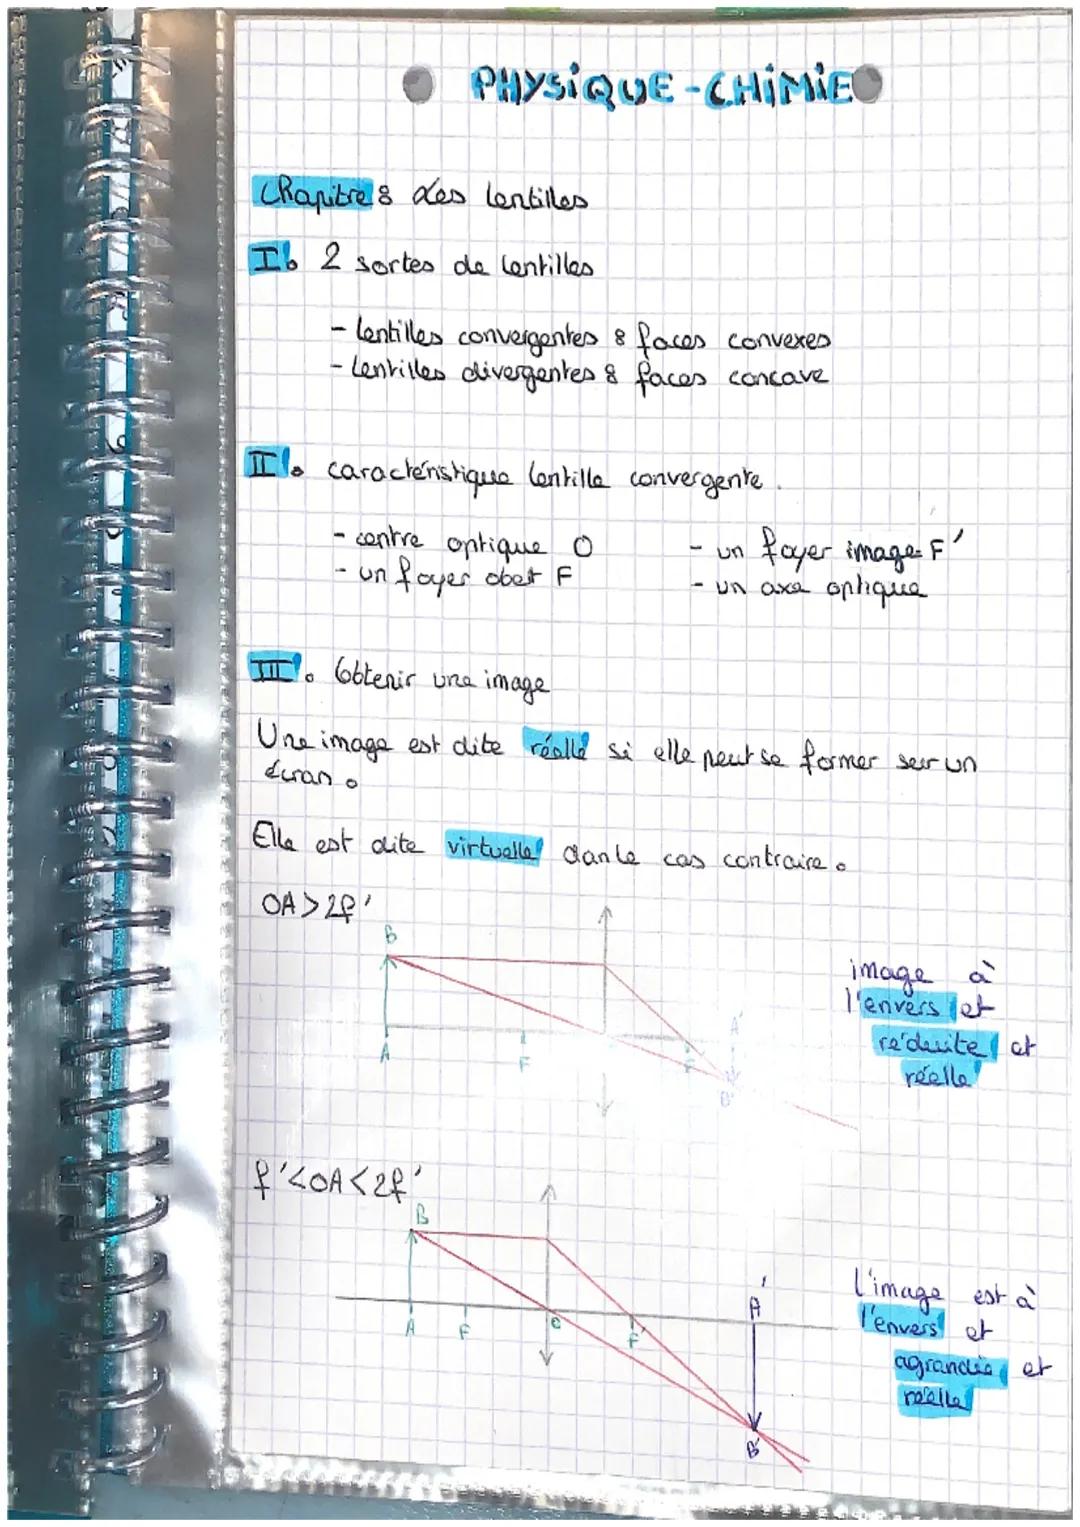 PHYSIQUE-CHIMIE
Chapitre : Les lentilles
I. 2 sortes de lentilles
- lentilles convergentes : faces convexes
- lentilles divergentes : faces concave
II. caractéristique lentille convergente.
- centre optique O
- un foyer obet F
- un foyer image F'
- un axe optique
III. Obtenir une image
Une image est dite réelle si elle peut se former sur un
écran.
Elle est dite virtuelle dan le cas contraire.
OA > 2f'
B
A
F
F'
A'
B'
image à
l'envers et
réduite et
réelle
f' < OA < 2f'
B
A
F
O
F'
A'
B'
L'image est à
l'envers et
agrandie et
réelle